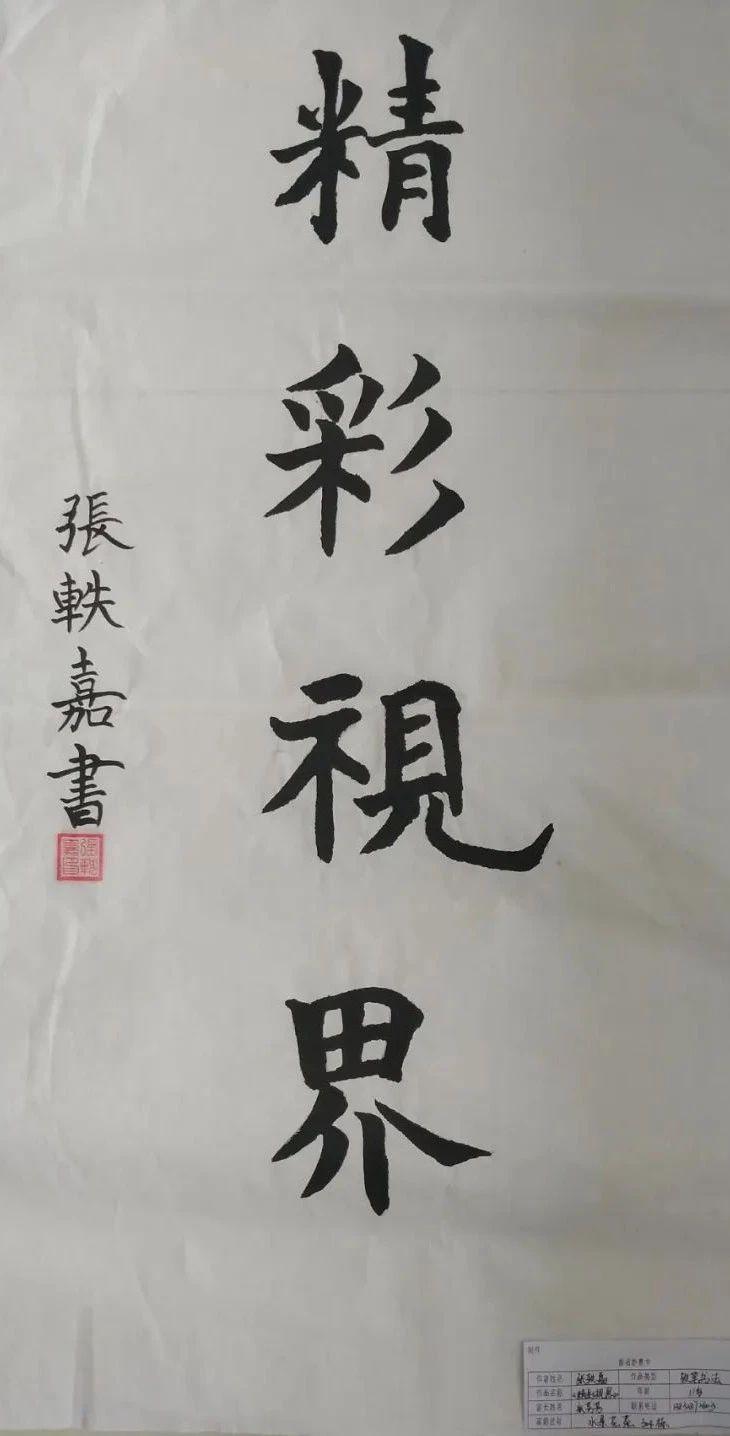 精彩視界
張軼嘉書
作者姓名 张轶嘉 作品类型 软笔书法
作品名称 《精彩視界》 年龄 11岁
家长姓名 联系电话